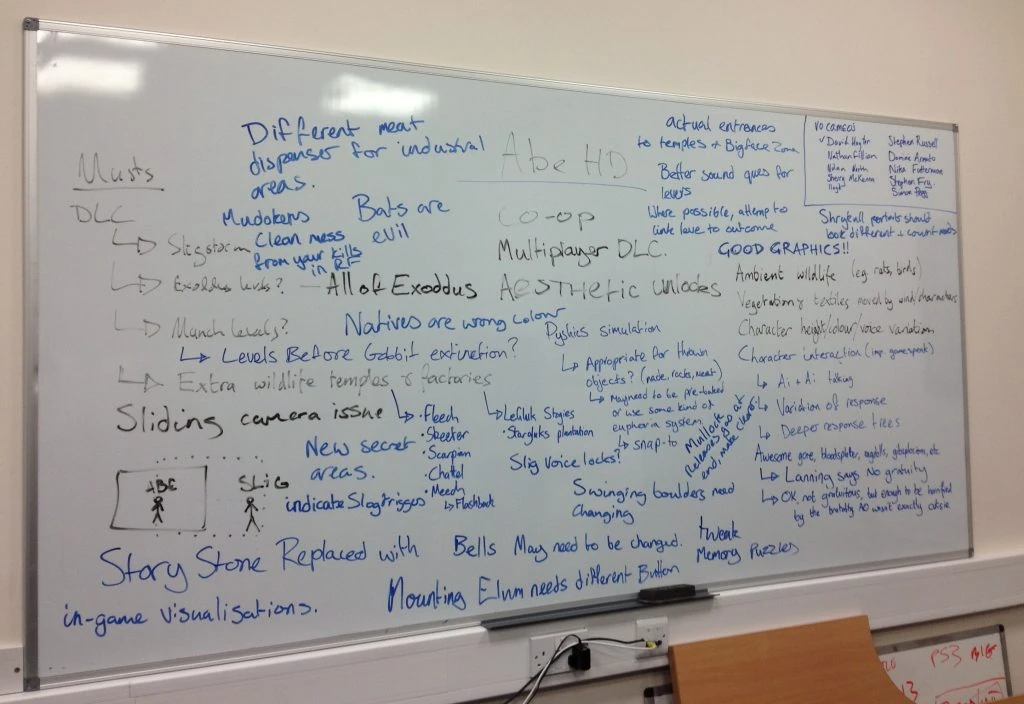 Musts
DLC
Sligstorm
Exoddus levels? — All of Exoddus
Munch levels?
Levels Before Gabbit extinction?
Extra wildlife temples & factories
• Fleech
• Skeeter
• Scarpam
• Chattel
• Meech
Flashback
• Stargluks plantation
Different meat
dispenser for industrial
areas.
Mudokens
Clean mess
from your kills
in RF
Bats are
evil
Natives are wrong colour
Sliding camera issue
ABE
SLIG
New secret
areas.
indicate Slogtriggers
Story Stone Replaced with
in-game visualisations.
Abe HD
CO-OP
Multiplayer DLC.
AESTHETIC UNLOCKS
Pyshics simulation
Appropriate for thrown
objects? (nade, rocks, meat)
May need to be pre-baked
or use some kind of
euphoria system
snap-to
Slig Voice locks?
Swinging boulders need
changing
Mullock
Releases gas at
end, make clearer.
Bells May need to be changed.
Mounting Elum needs different Button
tweak
Memory Puzzles
actual entrances
to temples + Bigface Zona
Better sound ques for
levers
Where possible, attempt to
link leve to outcome
VO CAMEOS
David Hayter
Nathan Fillion
Nolan North
Sherry McKenna
Lloyd
Stephen Russell
Nika Futterman
Stephen Fry
Simon Pegg
Shrykull portraits should
look different + count muds
GOOD GRAPHICS!!
Ambient wildlife (eg rats, birds)
Vegetation & textiles moved by wind/characters
Character height/colour/voice variation
Character interaction (imp. gamespeak)
Ai + Ai talking
Variation of response
Deeper response trees
Awesome gore, bloodsplatter, ragdolls, gibsplosion, etc
Lanning says No gratuity
OK not gratuitous, but enough to be horrified
by the brutality AO wasn't exactly cutsie
PS3 BIG